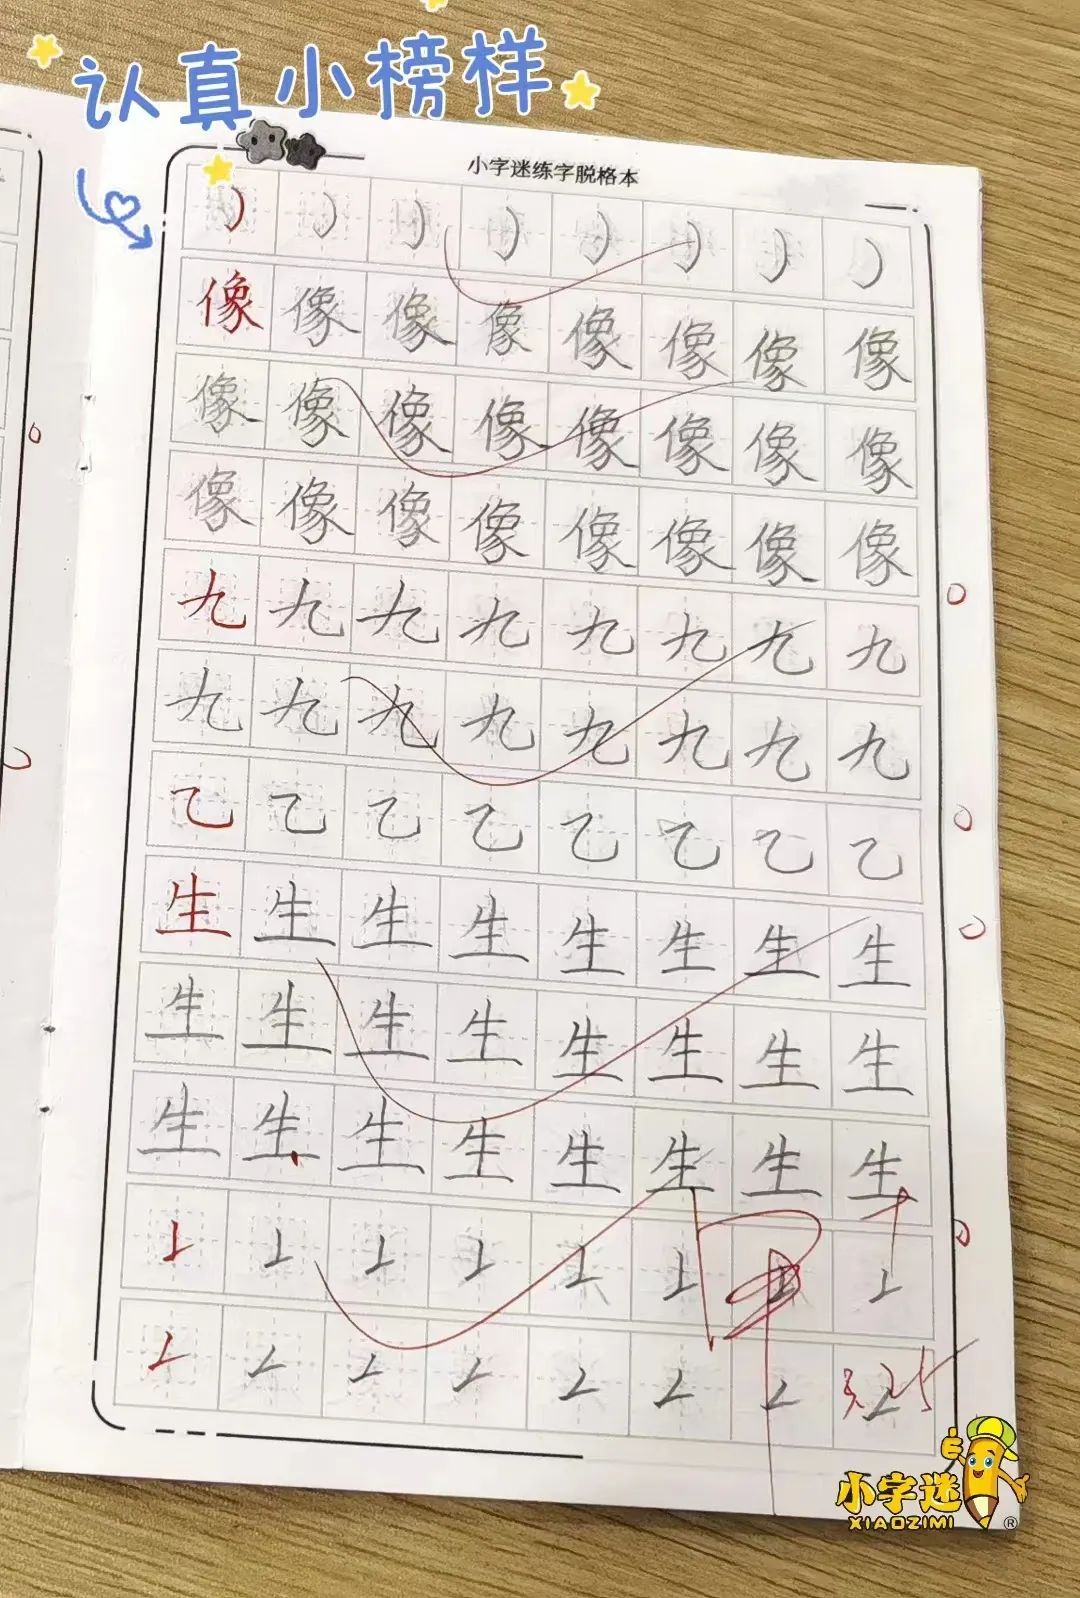 认真小榜样
小字迷练字脱格本
像像像像像像像像
像像像像像像像像
像像像像像像像像
九九九九九九九九
九九九九九九九九
乙乙乙乙乙乙乙乙
生生生生生生生生
生生生生生生生生
生生生生生生生生
3.25
小字迷
XIAOZIMI
®